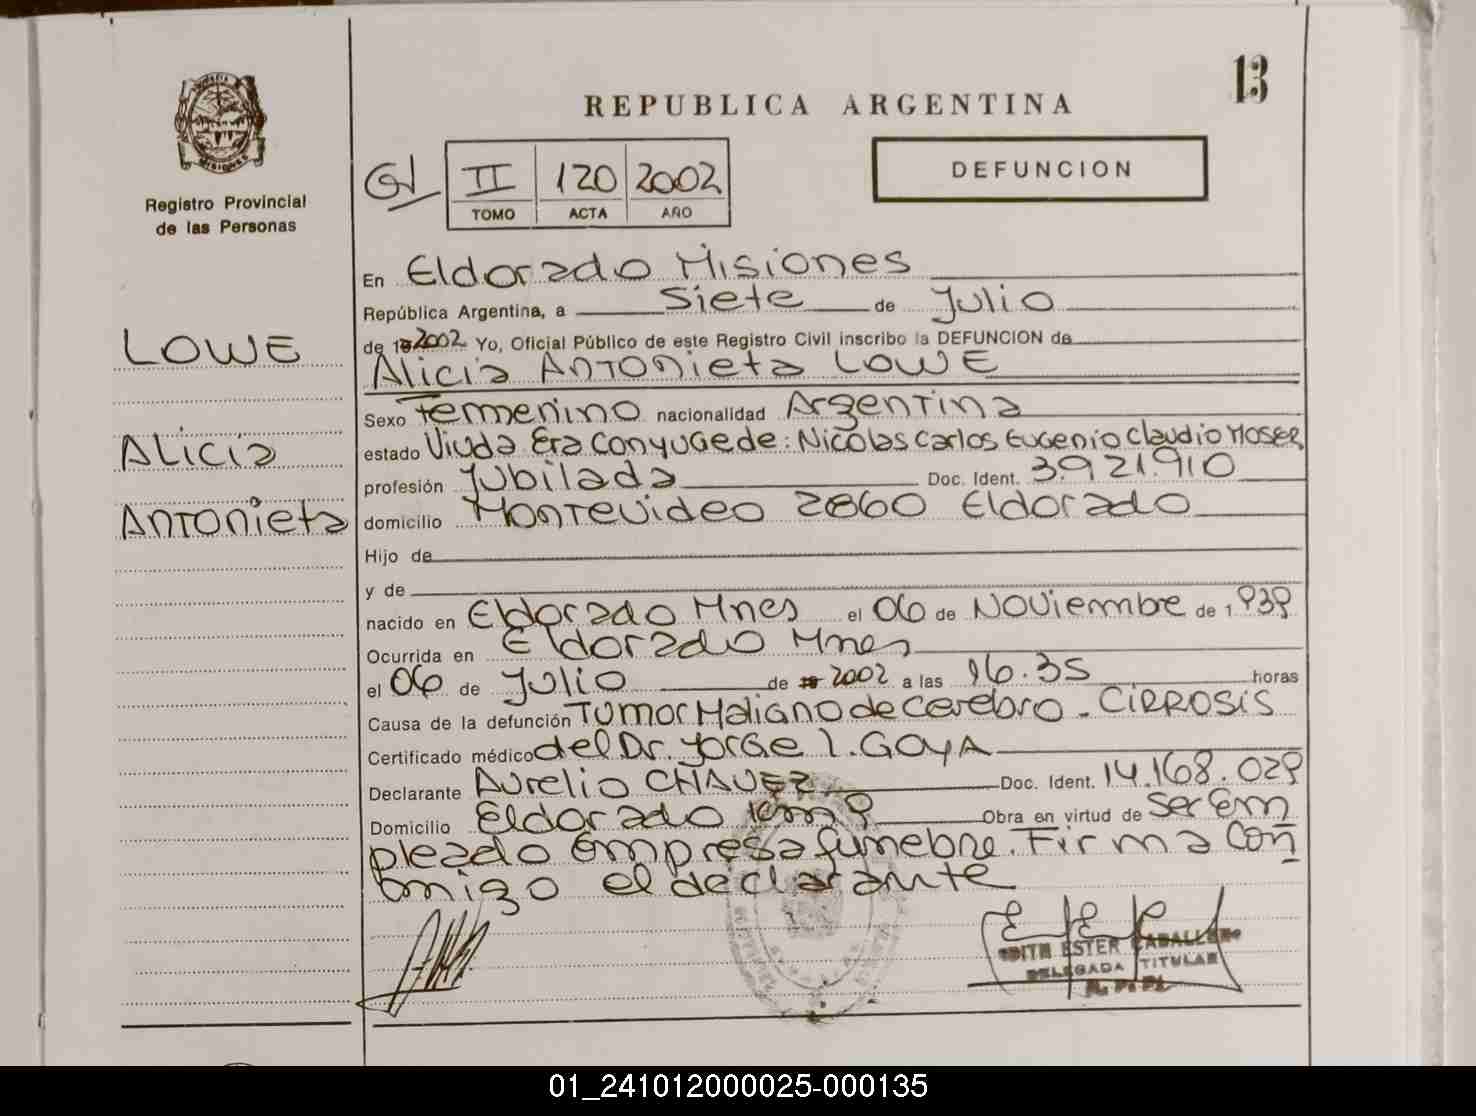 13
REPUBLICA ARGENTINA
DEFUNCION
II 120 2002
TOMO ACTA AÑO
MISIONES
Registro Provincial
de las Personas
LOWE
Alicia
Antonieta
En Eldorado Misiones
República Argentina, a Siete de Julio
de 2002 Yo, Oficial Público de este Registro Civil inscribo la DEFUNCION de
Alicia Antonieta LOWE
Sexo Femenino nacionalidad Argentina
estado Viuda Era Conyugede: Nicolas Carlos Eugenio Claudio Moser
profesión Jubilada Doc. Ident. 3.921.910
domicilio Montevideo 2860 Eldorado
Hijo de
y de
nacido en Eldorado Mnes el 06 de Noviembre de 1939
Ocurrida en Eldorado Mnes
el 06 de Julio de 2002 a las 16.35 horas
Causa de la defunción Tumor Maligno de Cerebro - Cirrosis
Certificado médico del Dr. Jorge I. GOYA
Declarante Aurelio CHAVEZ Doc. Ident. 14.168.029
Domicilio Eldorado Km 9 Obra en virtud de Ser Em
pleado Empresa fúnebre. Firma Con
migo el declarante
EDITH ESTER CABALLERO
DELEGADA TITULAR
01_241012000025-000135